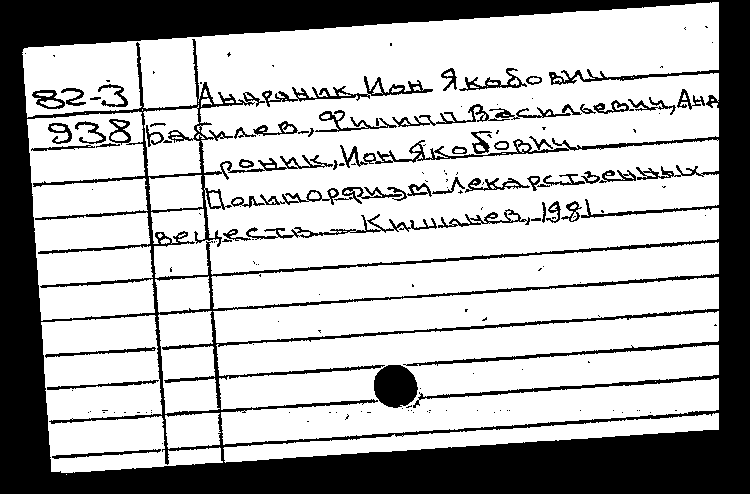 82-3 Андроник, Ион Якобович
938 Бабилев, Филипп Васильевич, Анд
роник, Ион Якобович.
Полиморфизм лекарственных
веществ. — Кишинев, 1981.